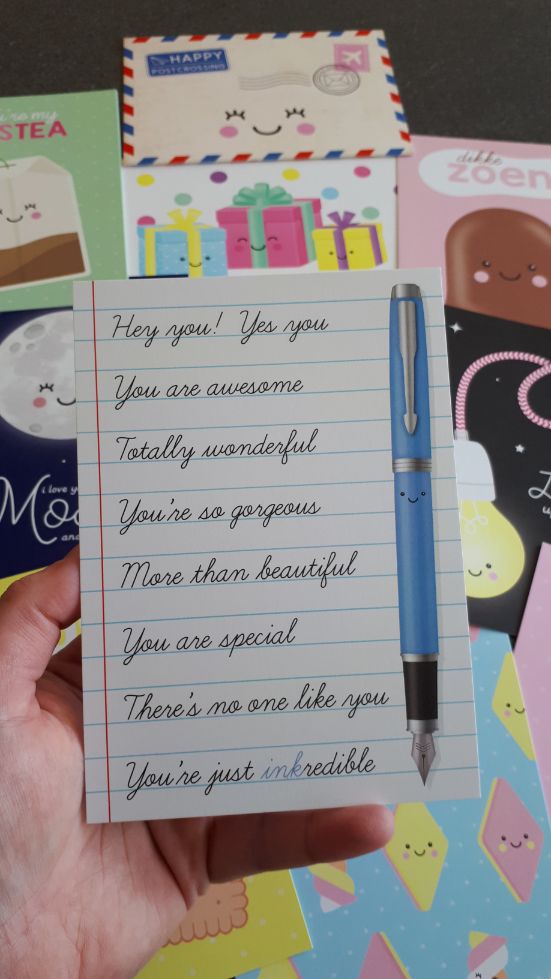 HAPPY
POSTCROSSING
you're my
TEA
dikke
zoen
Hey you! Yes you
You are awesome
Totally wonderful
You're so gorgeous
More than beautiful
You are special
There's no one like you
You're just inkredible
i love y
Moo
and